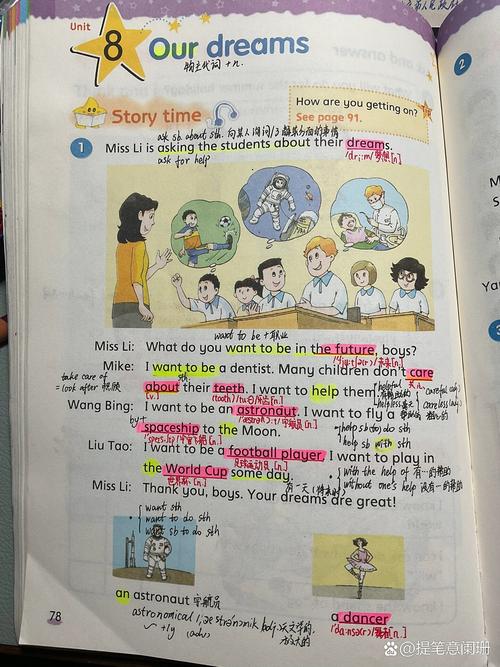 Unit 8 Our dreams
物主代词 + n.
Story time
How are you getting on?
See page 91.
ask sb about sth. 向某人询问
1 Miss Li is asking the students about their dreams.
ask for help
梦想 [n.]
want to be + 职业
Miss Li: What do you want to be in the future, boys?
Mike: I want to be a dentist. Many children don't care
take care of
= look after 照顾
about their teeth. I want to help them.
helpful
helpless
careful (adj)
careless (adj)
Wang Bing: I want to be an astronaut. I want to fly a
宇航员 [n.]
by +
spaceship to the Moon.
help sb (to) do sth
宇宙飞船 [n.]
help sb with sth
Liu Tao: I want to be a football player. I want to play in
足球运动员 [n.]
the World Cup some day.
with the help of 有…的帮助
世界杯 [n.]
有一天 (将来时)
without one's help 没有…的帮助
Miss Li: Thank you, boys. Your dreams are great!
want sth
want to do sth
want sb to do sth
an astronaut 宇航员
a dancer
astronomical
天文学的,
+ly (adv)
[n.]
78
2
@提笔意阑珊